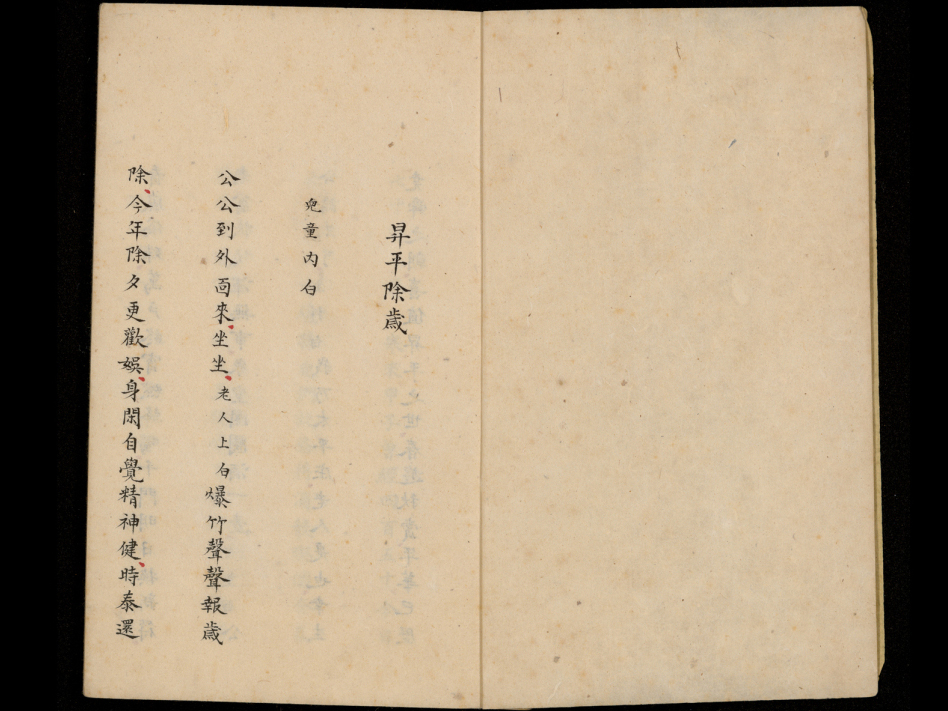 昇平除歲
兒童内白
公公到外面來、坐坐、老人上白爆竹聲聲報歲
除、今年除夕更歡娛、身閑自覺精神健、時泰還